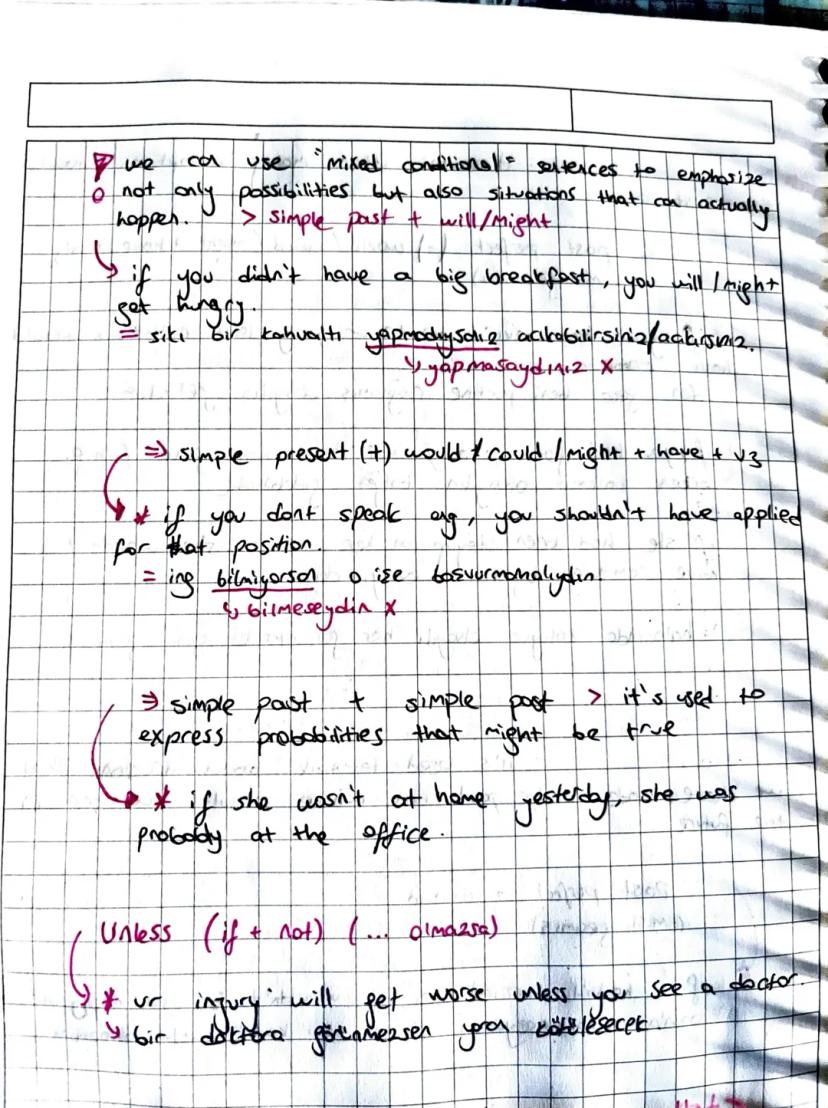 we can use "mixed conditional" sentences to emphasize
not only possibilities but also situations that can actually
happen. > simple past + will/might
if you didn't have a big breakfast, you will/might
get hungry.
= siki bir kahvaltı yapmadıysanız acıkabilirsiniz/acıkırsınız.
↳ yapmasaydınız X
⇒ simple present (+) would / could / might + have + v3
* if you dont speak eng, you shouldn't have applied
for that position.
= ing bilmiyorsan o işe başvurmamalıydın.
↳ bilmeseydin X
⇒ simple past + simple past > it's used to
express probabilities that might be true
* if she wasn't at home yesterday, she was
probably at the office.
Unless (if + not) (... olmazsa)
* ur injury will get worse unless you see a doctor.
↳ bir doktora görünmezsen yaran kötüleşecek